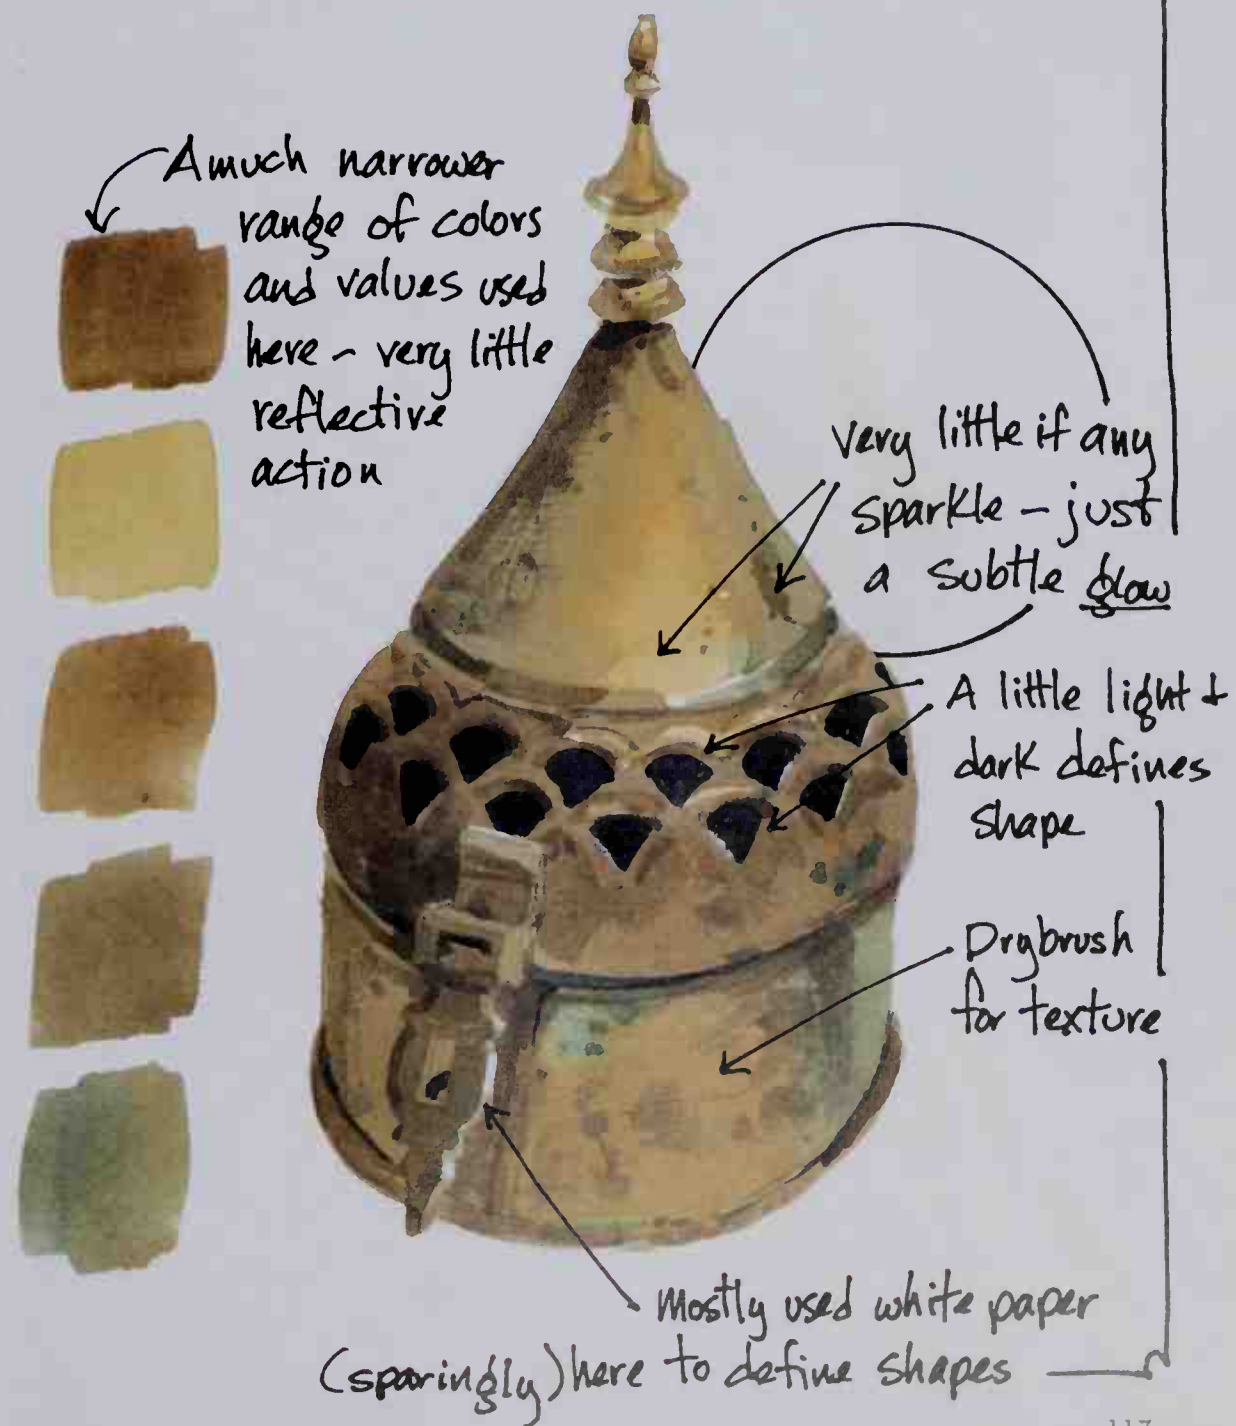 A much narrower
range of colors
and values used
here - very little
reflective
action
very little if any
sparkle - just
a subtle glow
A little light +
dark defines
shape
Drybrush
for texture
mostly used white paper
(sparingly) here to define shapes
117